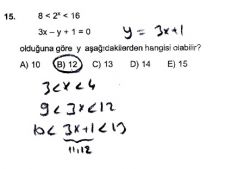 15. 8 < 2ˣ < 16
3x – y + 1 = 0 y = 3x+1
olduğuna göre y aşağıdakilerden hangisi olabilir?
A) 10 B) 12 C) 13 D) 14 E) 15
3 < x < 4
9 < 3x < 12
10 < 3x+1 < 13
11,12